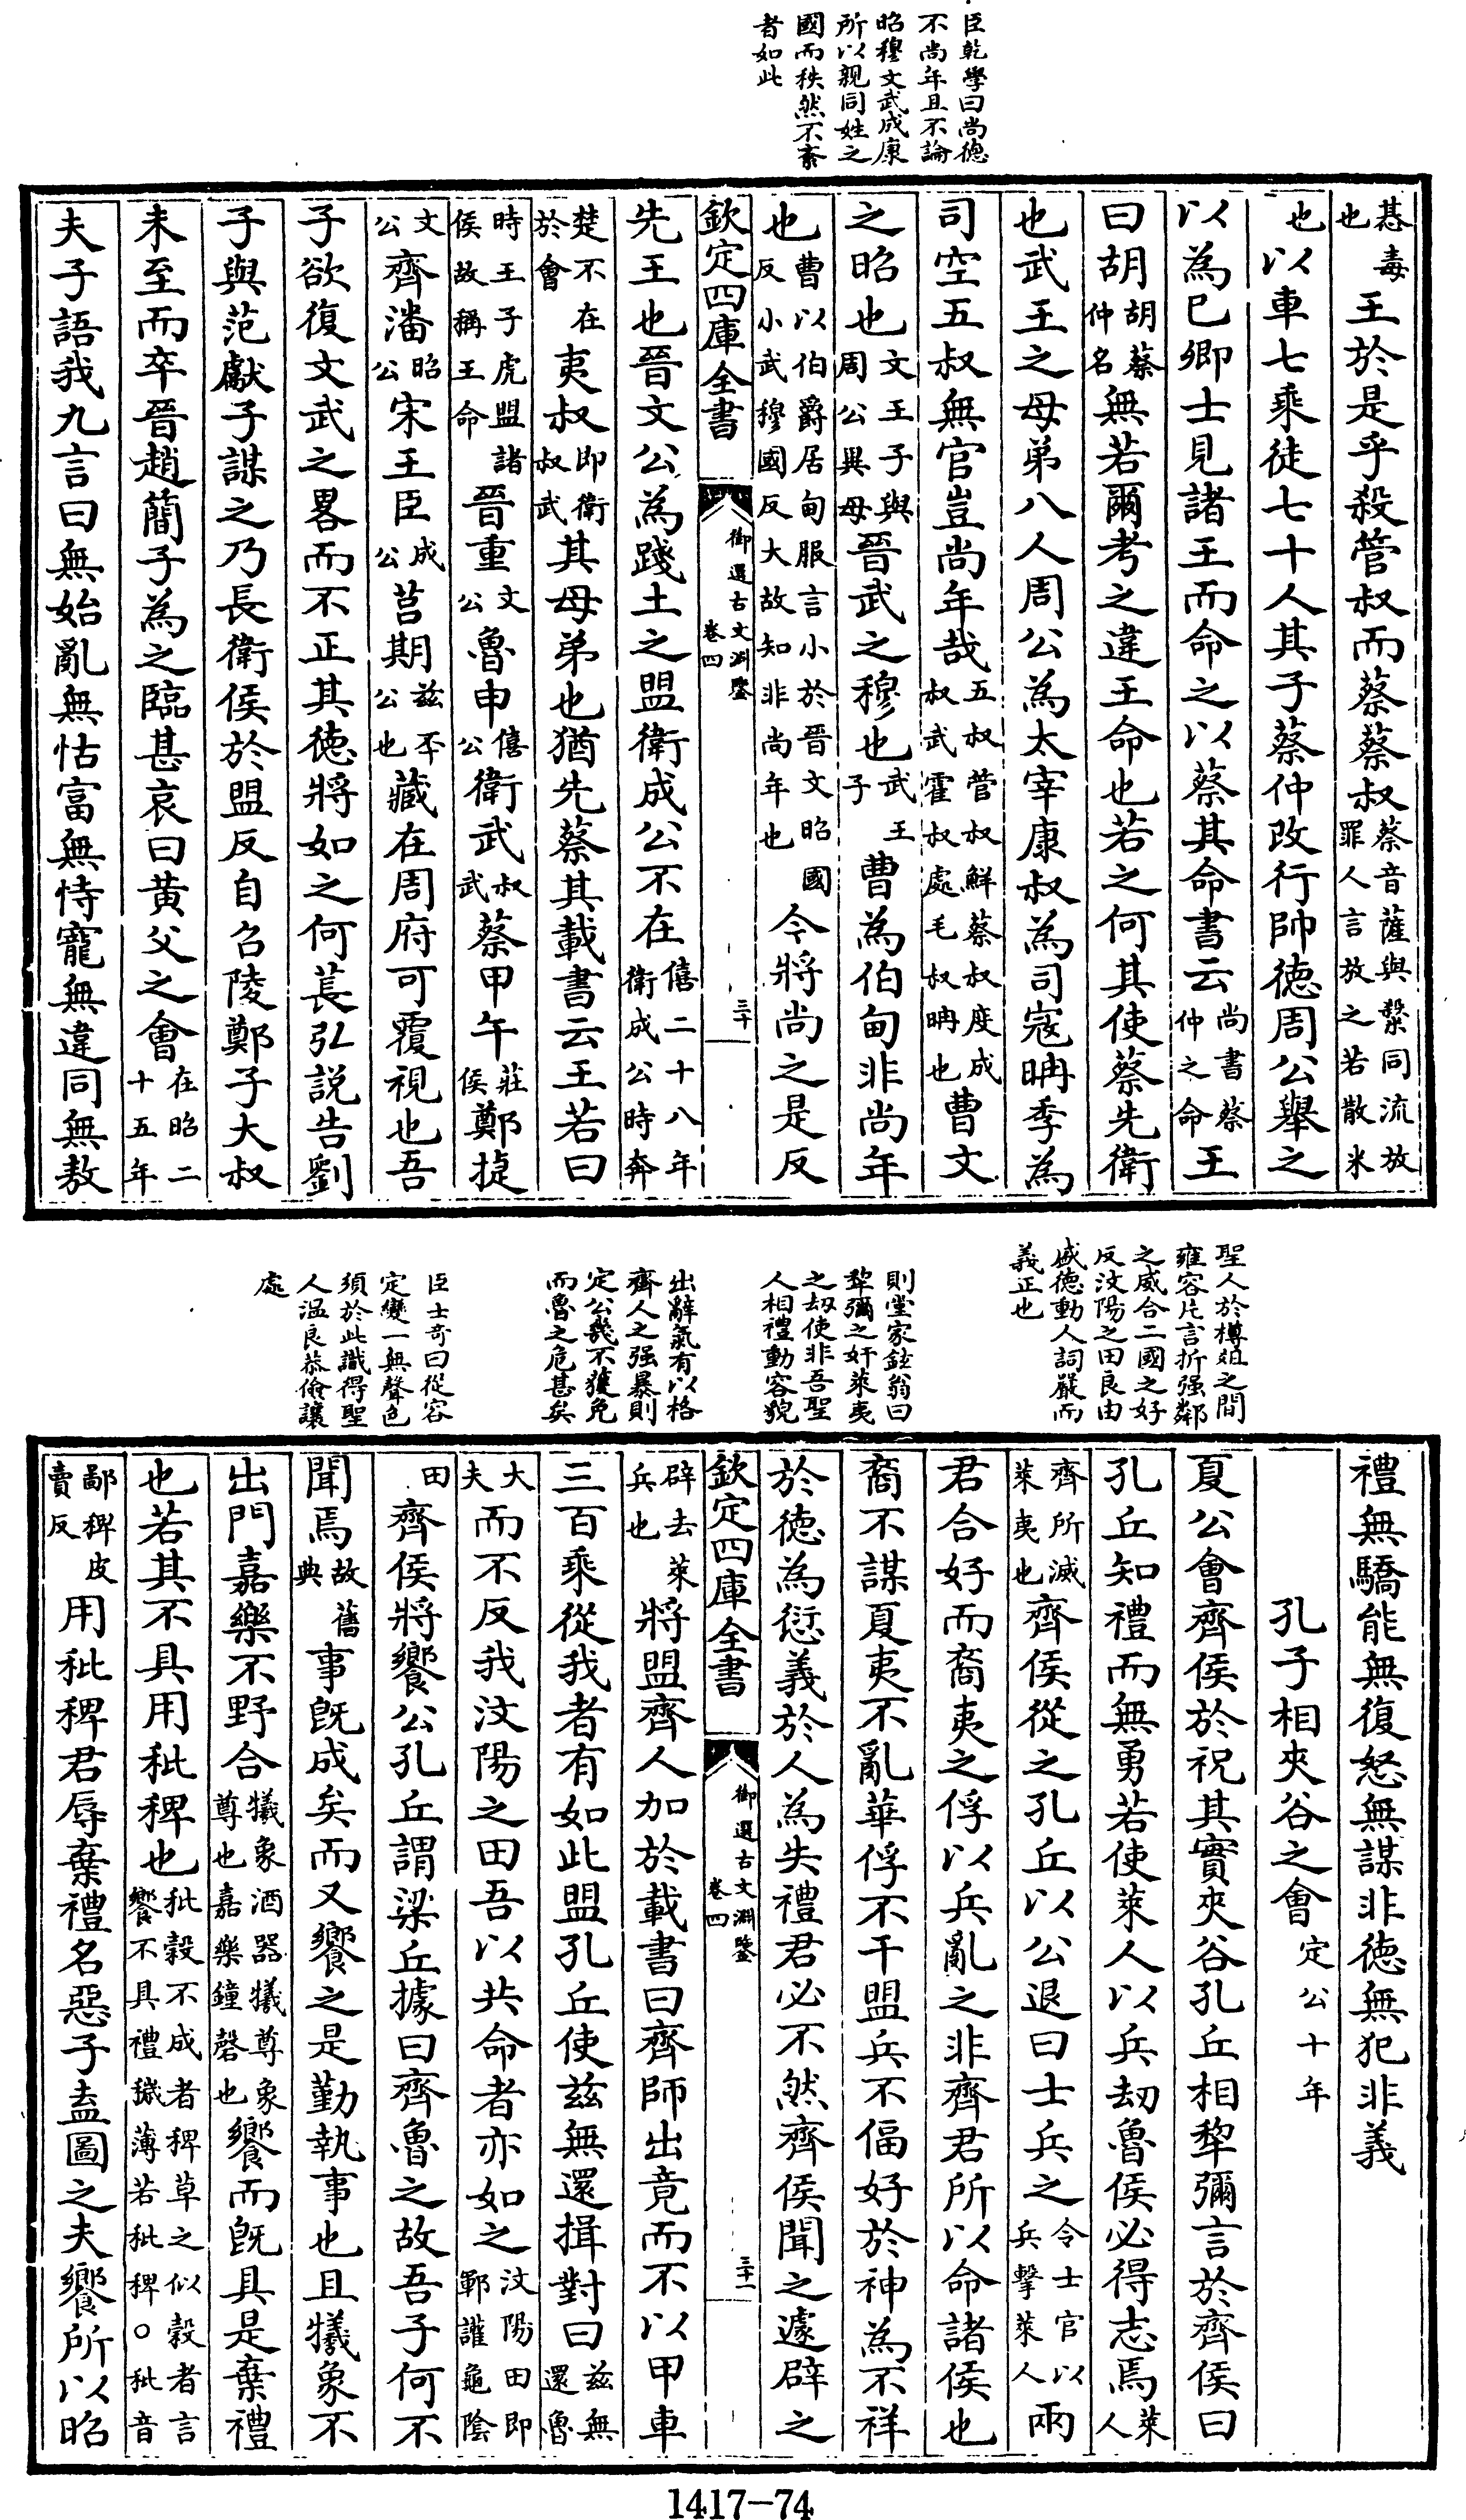 臣乾學曰尚德
不尚年且不論
昭穆文武成康
所以親同姓之
國而秩然不紊
者如此
惎毒
也
王於是乎殺管叔而蔡蔡叔
蔡音薩與槃同流放
罪人言放之若散米
也
以車七乘徒七十人其子蔡仲改行帥德周公舉之
以為已卿士見諸王而命之以蔡其命書云
尚書蔡
仲之命
王
曰胡
胡蔡
仲名
無若爾考之違王命也若之何其使蔡先衛
也武王之母弟八人周公為太宰康叔為司寇聃季為
司空五叔無官豈尚年哉
五叔管叔鮮蔡叔度成
叔武霍叔處毛叔聃也
曹文
之昭也
文王子與
周公異母
晉武之穆也
武王
子
曹為伯甸非尚年
也
曹以伯爵居甸服言小於晉文昭國
反小武穆國反大故知非尚年也
今將尚之是反
欽定四庫全書
御選古文淵鑒
卷四
三十
先王也晉文公為踐土之盟衛成公不在
僖二十八年
衛成公時奔
楚不在
於會
夷叔
即衛
叔武
其母弟也猶先蔡其載書云王若曰
時王子虎盟諸
侯故稱王命
晉重
文
公
魯申
僖
公
衛武
叔
武
蔡甲午
莊
侯
鄭捷
文
公
齊潘
昭
公
宋王臣
成
公
莒期
茲㔻
公也
藏在周府可覆視也吾
子欲復文武之畧而不正其德將如之何萇弘說告劉
子與范獻子謀之乃長衛侯於盟反自召陵鄭子大叔
未至而卒晉趙簡子為之臨甚哀曰黃父之會
在昭二
十五年
夫子語我九言曰無始亂無怙富無恃寵無違同無敖
聖人於樽俎之間
雍容片言折强鄰
之威合二國之好
反汶陽之田良由
盛德動人詞嚴而
義正也
則堂家鉉翁曰
犂彌之奸萊夷
之刼使非吾聖
人相禮動容貌
出辭氣有以格
齊人之强暴則
定公幾不獲免
而魯之危甚矣
臣士奇曰從容
定變一無聲色
須於此識得聖
人溫良恭儉讓
處
禮無驕能無復怒無謀非德無犯非義
孔子相夾谷之會
定公十年
夏公會齊侯於祝其實夾谷孔丘相犂彌言於齊侯曰
孔丘知禮而無勇若使萊人以兵刼魯侯必得志焉
萊
人
齊所滅
萊夷也
齊侯從之孔丘以公退曰士兵之
令士官以
兵擊萊人
兩
君合好而裔夷之俘以兵亂之非齊君所以命諸侯也
裔不謀夏夷不亂華俘不干盟兵不偪好於神為不祥
於德為愆義於人為失禮君必不然齊侯聞之遽辟之
欽定四庫全書
御選古文淵鑒
卷四
三十一
辟去萊
兵也
將盟齊人加於載書曰齊師出竟而不以甲車
三百乘從我者有如此盟孔丘使茲無還揖對曰
茲無
還魯
大
夫
而不反我汶陽之田吾以共命者亦如之
汶陽田即
鄆讙龜陰
田
齊侯將饗公孔丘謂梁丘據曰齊魯之故吾子何不
聞焉
故舊
典
事既成矣而又饗之是勤執事也且犧象不
出門嘉樂不野合
犧象酒器犧尊象
尊也嘉樂鐘磬也
饗而既具是棄禮
也若其不具用秕稗也
秕穀不成者稗草之似穀者言
饗不具禮穢薄若秕稗○秕音
鄙稗皮
賣反
用秕稗君辱棄禮名惡子盍圖之夫饗所以昭
1417-74